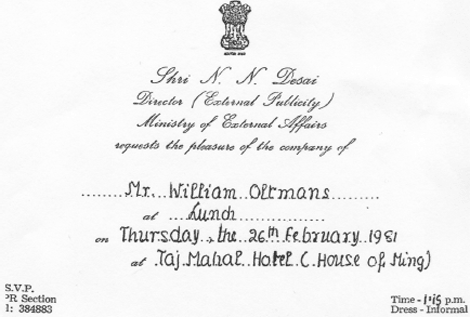 Shri N. N. Desai
Director (External Publicity)
Ministry of External Affairs
requests the pleasure of the company of
Mr. William Oltmans
at Lunch
on Thursday, the 26th February 1981
at Taj Mahal Hotel (House of Ming)
S.V.P.
PR Section
l: 384883
Time - 1.15 p.m.
Dress - Informal